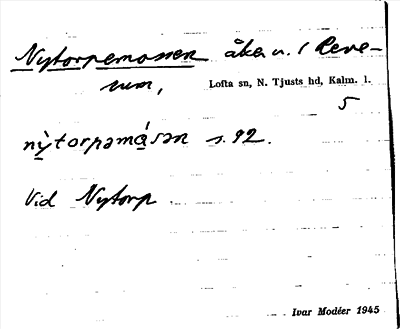 Nytorpemossen åker u. / Reve-
rum,
Lofta sn, N. Tjusts hd, Kalm. l.
5
nỳtorpəmásən s. 92.
Vid Nytorp
Ivar Modéer 1945